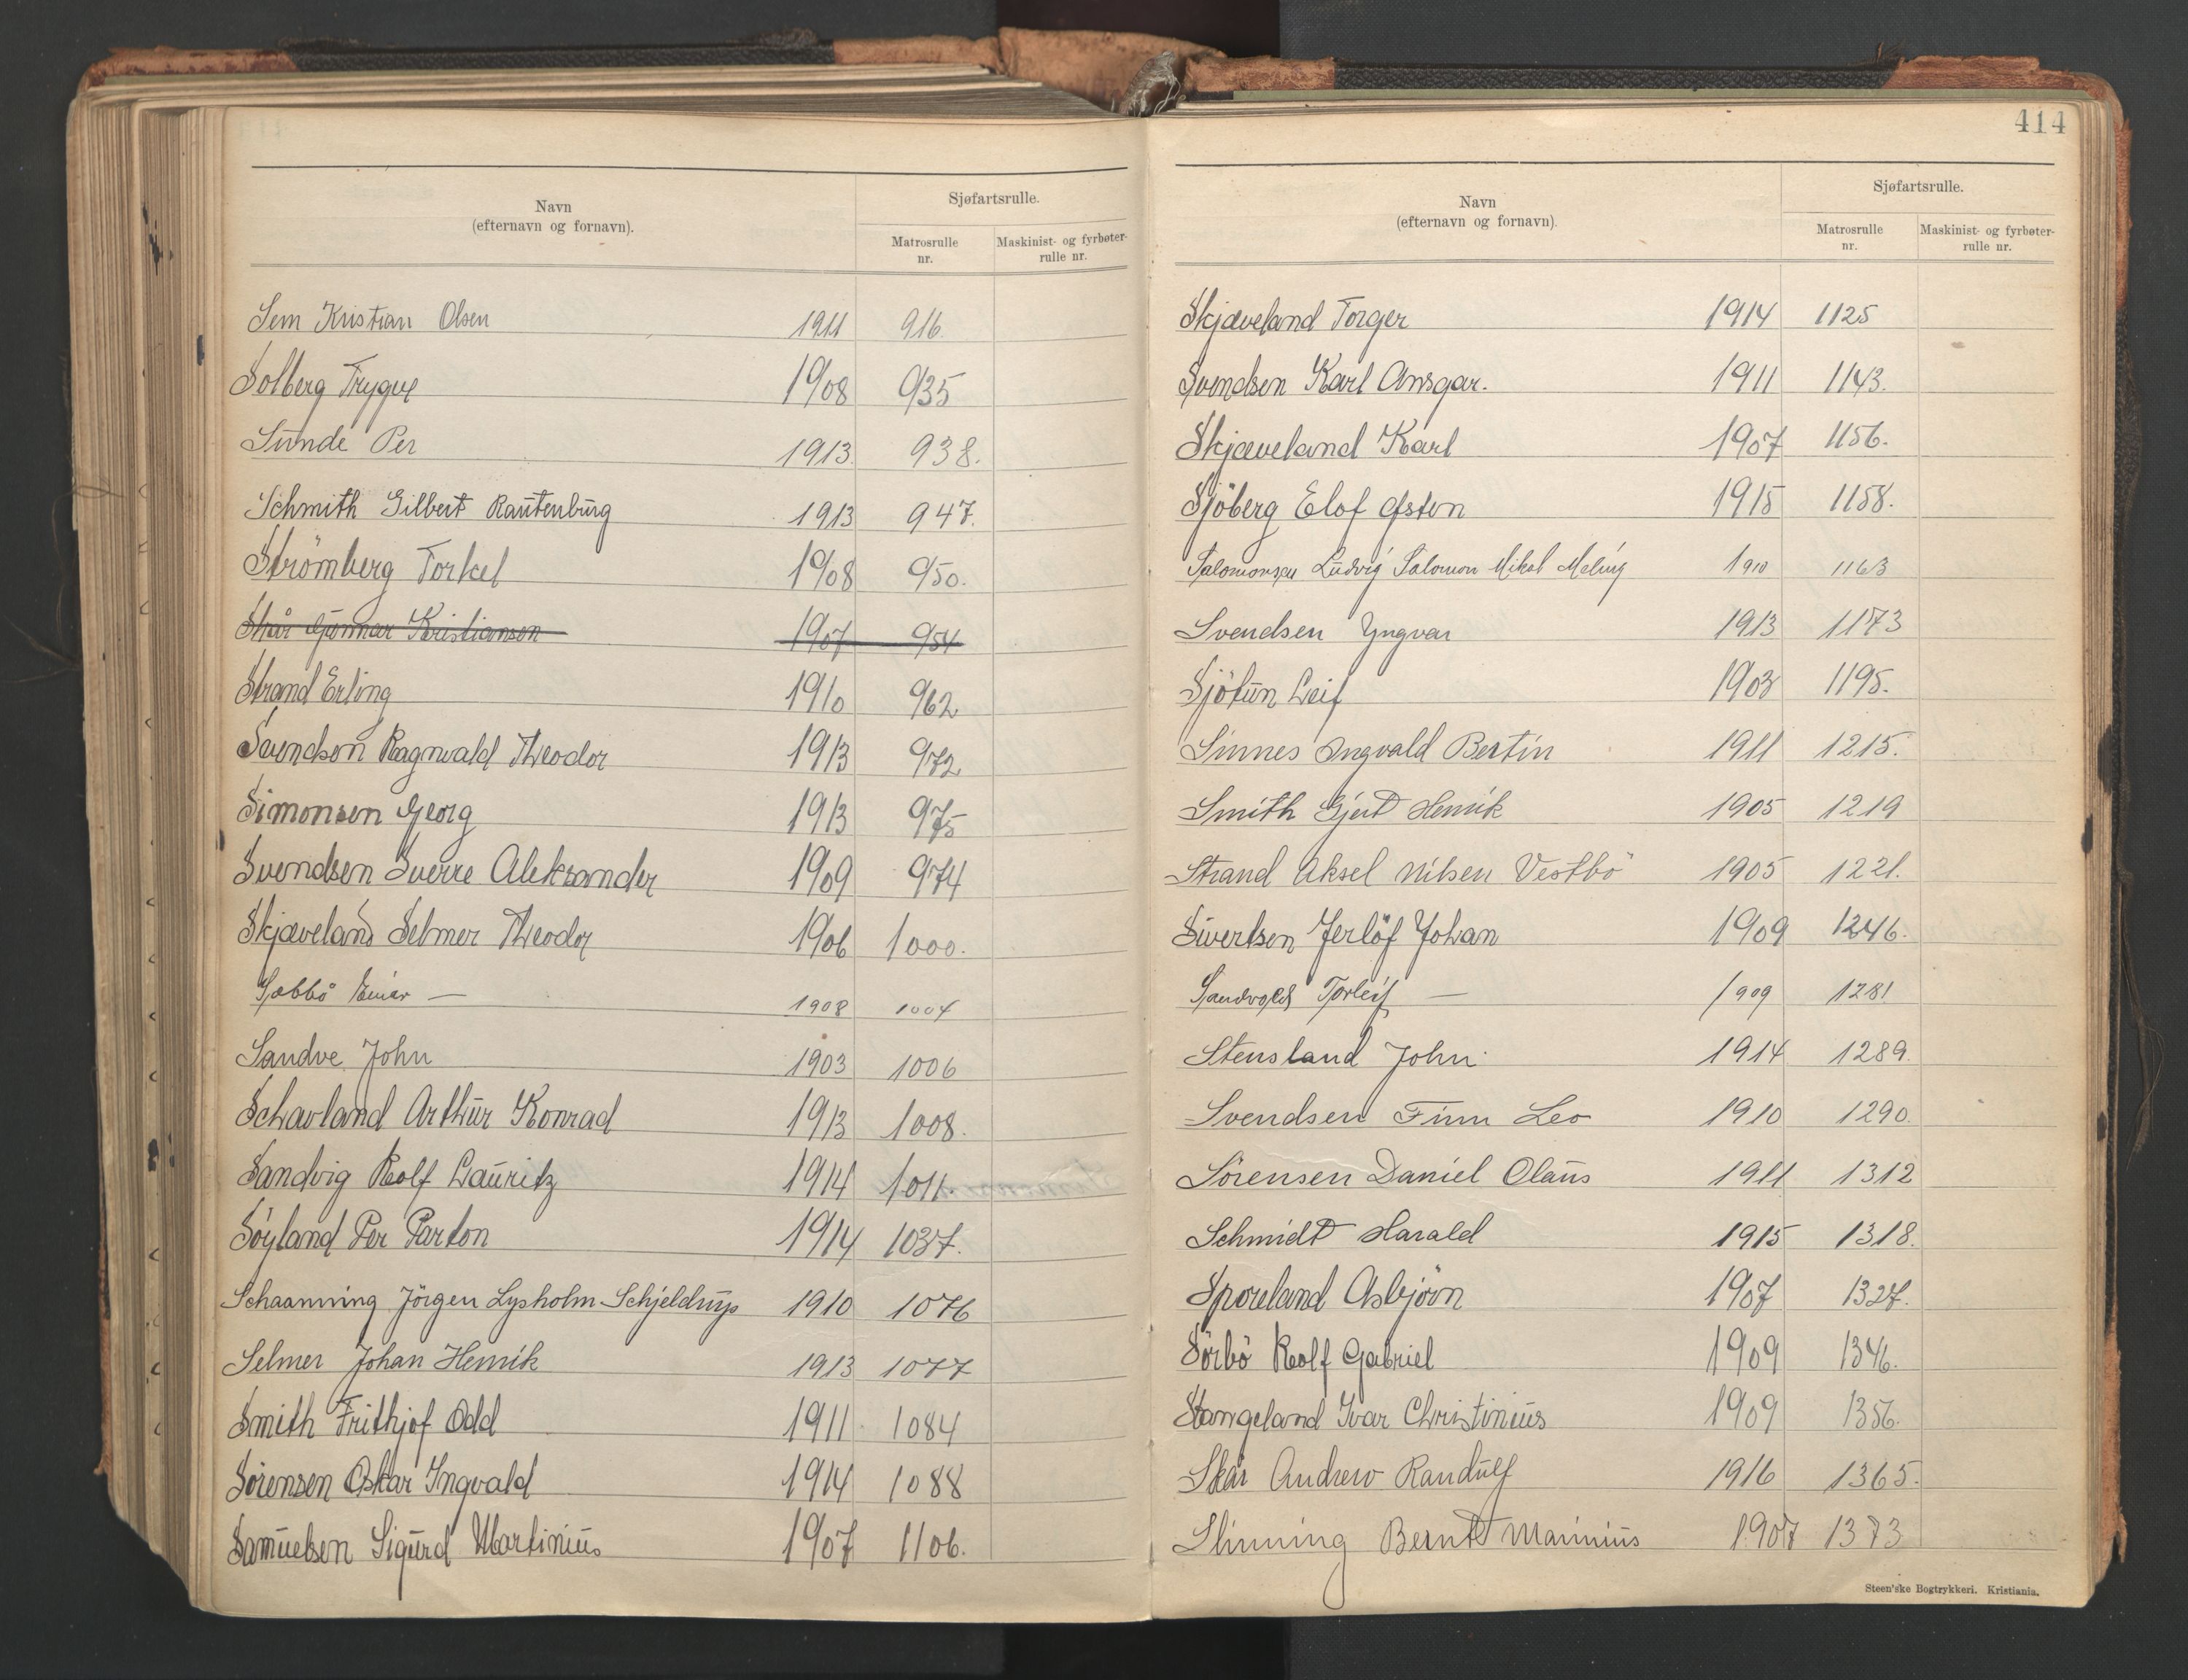 Navn
(efternavn og fornavn).
Sjøfartsrulle.
Matrosrulle nr.
Maskinist- og fyrbøter-rulle nr.
Sem Kristian Olsen 1911 916.
Solberg Trygve 1908 935
Sunde Per 1913. 938.
Schmith Gilbert Rautenburg 1913 947.
Strömberg Torkel 1908 950.
Skår Gunnar Kristiansen 1907 954
Strand Erling 1910 962
Svendsen Ragnvald Theodor 1913 972
Simonsen Georg 1913 975
Svendsen Sverre Aleksander 1909 974
Skjæveland Selmer Theodor 1906 1000.
Sæbbö Einar — 1908 1004
Sandve John 1903 1006
Schavland Arthur Konrad 1913 1008.
Sandvig Rolf Lauritz 1914 1011.
Söyland Per Parton 1914 1037.
Schaanning Jörgen Lysholm Schjeldrup 1910 1076
Selmer Johan Henrik 1913 1077
Smith Frithjof Odd 1911 1084
Sörensen Oskar Ingvald 1914 1088
Samuelsen Sigurd Martinius 1907 1106.
414
Navn
(efternavn og fornavn).
Sjøfartsrulle.
Matrosrulle nr.
Maskinist- og fyrbøter-rulle nr.
Skjæveland Torger 1914 1125
Svendsen Karl Ansgar. 1911 1143.
Skjæveland Karl 1907 1156.
Sjöberg Elof Østen 1915 1158.
Salomonsen Ludvig Salomon Mikal Meling 1910 1163
Svendsen Yngvar 1913 1173
Sjötun Leif 1903 1195.
Sinnes Ingvald Bertin 1911 1215.
Smith Gjert Henrik 1905 1219
Strand Aksel Nilsen Vestbö 1905 1221.
Sivertsen Jerlöf Johan 1909 1246.
Sandvold Torleif — 1909 1281
Stensland John 1914 1289.
Svendsen Finn Leo 1910 1290.
Sörensen Daniel Olaus 1911 1312
Schmidt Harald 1915 1318.
Sporeland Asbjörn 1907 1327.
Sörbö Rolf Gabriel 1909 1346.
Stangeland Ivar Christinius 1909 1356.
Skår Andrew Randulf 1916 1365.
Slinning Bernt Marinius 1907 1373
Steen'ske Bogtrykkeri. Kristiania.